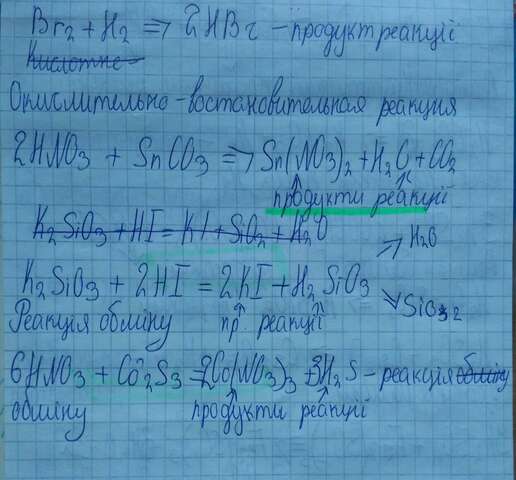 Br2 + H2 => 2HBr - продукт реакції
Кислотне
Окислительно-востановительная реакция
2HNO3 + SnCO3 => Sn(NO3)2 + H2O + CO2
продукти реакції
K2SiO3 + HI = KI + SiO2 + H2O
K2SiO3 + 2HI = 2KI + H2SiO3
H2O
SiO2
Реакція обміну пр. реакції
6HNO3 + Co2S3 = 2Co(NO3)3 + 3H2S - реакція обміну
обміну продукти реакції